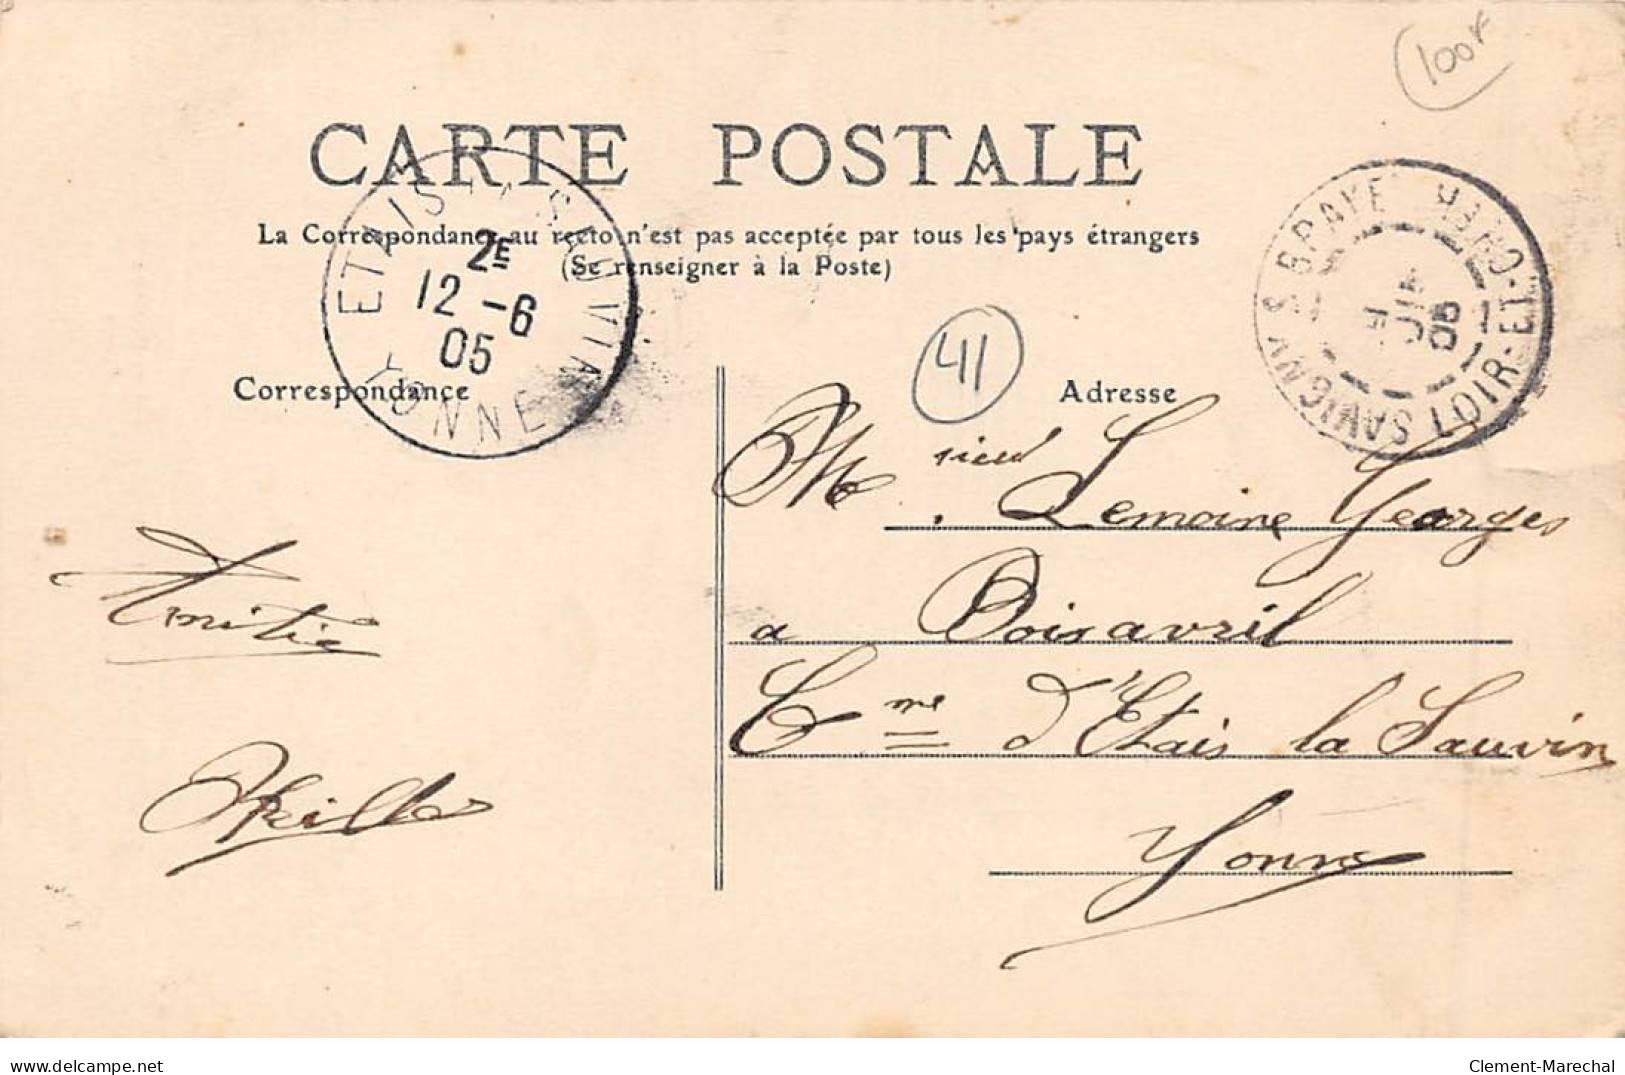 100F
CARTE POSTALE
La Correspondance au recto n'est pas acceptée par tous les pays étrangers
(Se renseigner à la Poste)
ETAIS-LA-SAUVIN
2E
12 -6
05
YONNE
SAVIGNY S BRAYE
JUIN
05
LOIR-ET-CHER
41
Correspondance
Adresse
Amitié
Msieur Lemoine Georges
a Boisavril
Cme d'Etais la Sauvin
Yonne
delcampe.net
Clement-Marechal